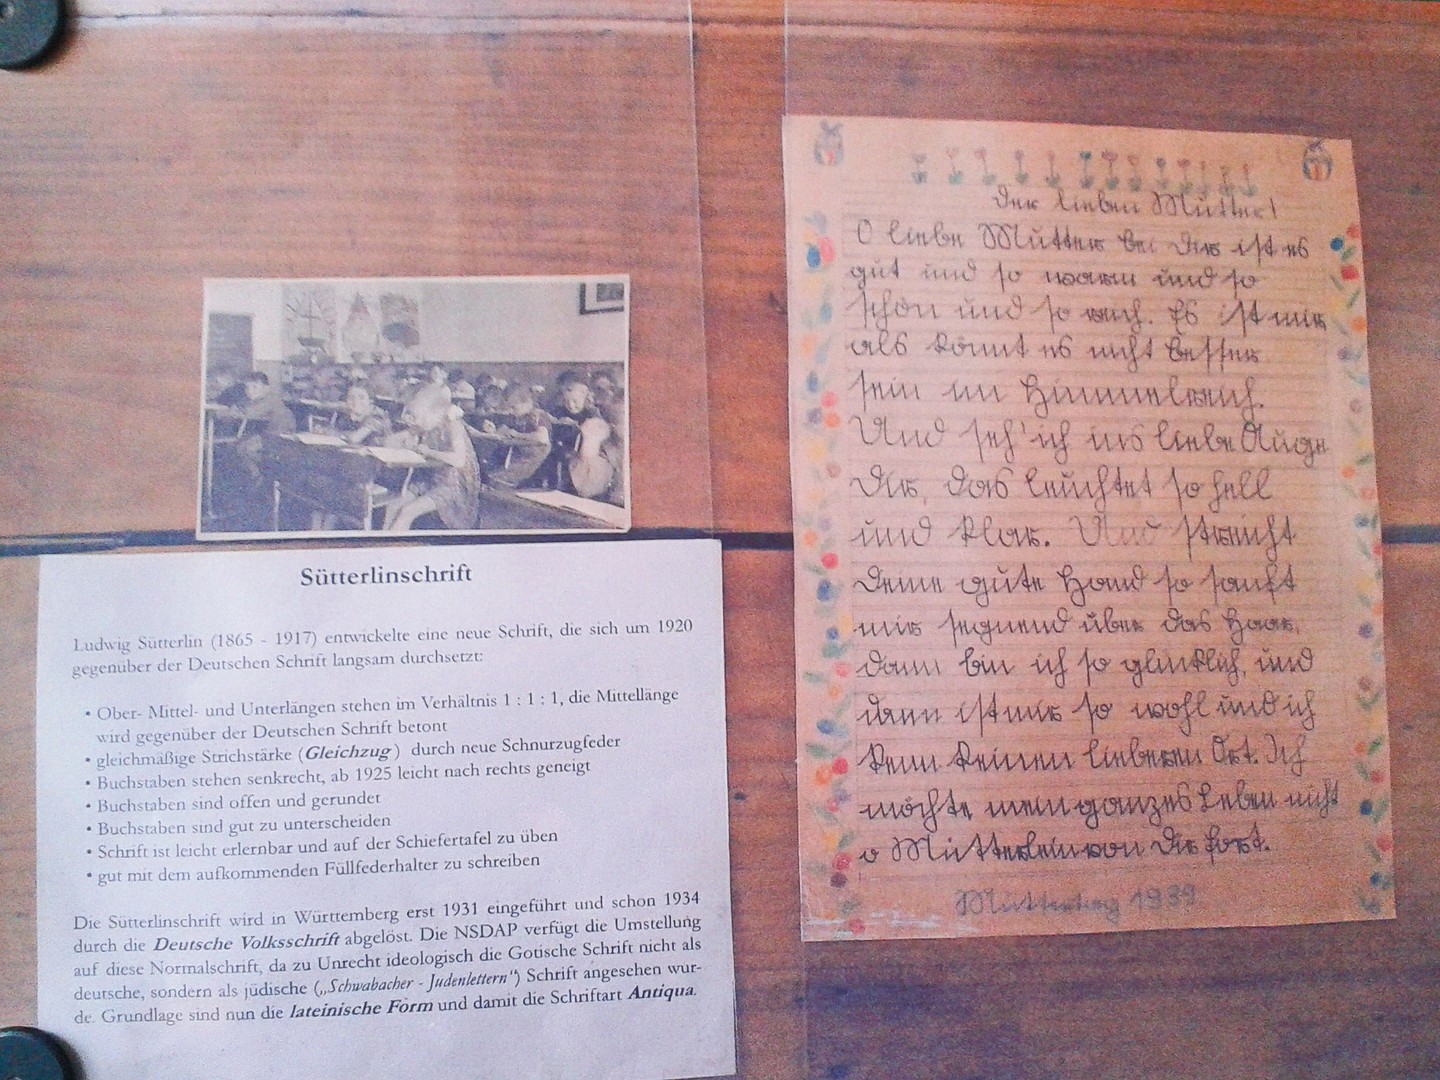 Sütterlinschrift
Ludwig Sütterlin (1865 - 1917) entwickelte eine neue Schrift, die sich um 1920
gegenüber der Deutschen Schrift langsam durchsetzt:
• Ober- Mittel- und Unterlängen stehen im Verhältnis 1 : 1 : 1, die Mittellänge
wird gegenüber der Deutschen Schrift betont
• gleichmäßige Strichstärke (Gleichzug) durch neue Schnurzugfeder
• Buchstaben stehen senkrecht, ab 1925 leicht nach rechts geneigt
• Buchstaben sind offen und gerundet
• Buchstaben sind gut zu unterscheiden
• Schrift ist leicht erlernbar und auf der Schiefertafel zu üben
• gut mit dem aufkommenden Füllfederhalter zu schreiben
Die Sütterlinschrift wird in Württemberg erst 1931 eingeführt und schon 1934
durch die Deutsche Volksschrift abgelöst. Die NSDAP verfügt die Umstellung
auf diese Normalschrift, da zu Unrecht ideologisch die Gotische Schrift nicht als
deutsche, sondern als jüdische („Schwabacher - Judenlettern") Schrift angesehen wur-
de. Grundlage sind nun die lateinische Form und damit die Schriftart Antiqua.
Der lieben Mutter!
O liebe Mutter bei dir ist es
gut und so warm und so
schön und so reich. Es ist mir
als könnt es nicht besser
sein im Himmelreich.
Und seh' ich ins liebe Auge
dir, das leuchtet so hell
und klar. Und streicht
deine gute Hand so sanft
mir segnend über das Haar,
dann bin ich so glücklich, und
dann ist mir so wohl und ich
kenn keinen lieberen Ort. Ich
möchte mein ganzes Leben nicht
o Mütterlein von dir fort.
Muttertag 1939